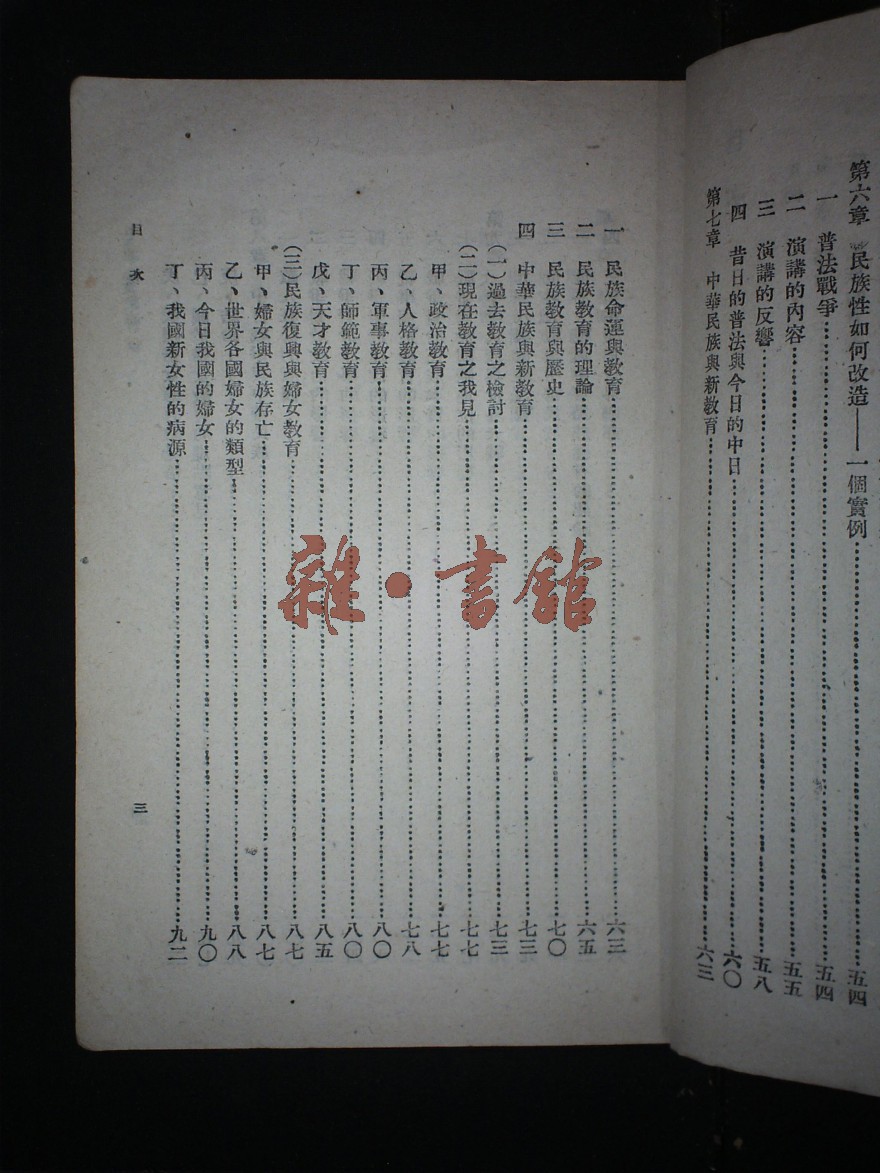 第六章 民族性如何改造——一個實例……五四
一 普法戰爭……五四
二 演講的內容……五五
三 演講的反響……五八
四 昔日的普法與今日的中日……六〇
第七章 中華民族與新教育……六三
一 民族命運與教育……六三
二 民族教育的理論……六五
三 民族教育與歷史……七〇
四 中華民族與新教育……七三
(一)過去教育之檢討……七三
(二)現在教育之我見……七七
甲、政治教育……七七
乙、人格教育……七八
丙、軍事教育……八〇
丁、師範教育……八〇
戊、天才教育……八五
(三)民族復興與婦女教育……八七
甲、婦女與民族存亡……八七
乙、世界各國婦女的類型……八八
丙、今日我國的婦女……九〇
丁、我國新女性的病源……九二
目次
三
雜·書館